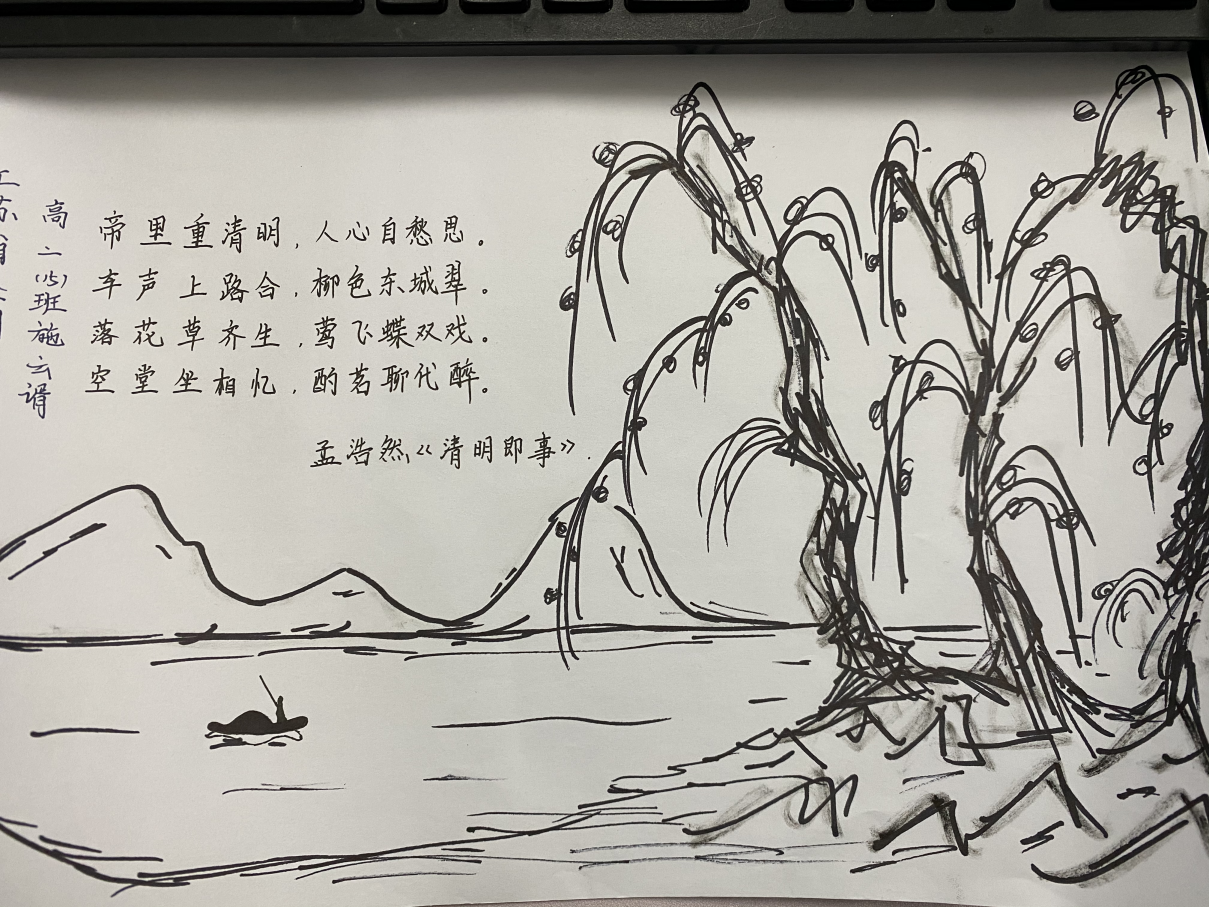 帝里重清明，人心自愁思。
车声上路合，柳色东城翠。
落花草齐生，莺飞蝶双戏。
空堂坐相忆，酌茗聊代醉。
孟浩然《清明即事》.
高二(15)班施云谞
江苏省